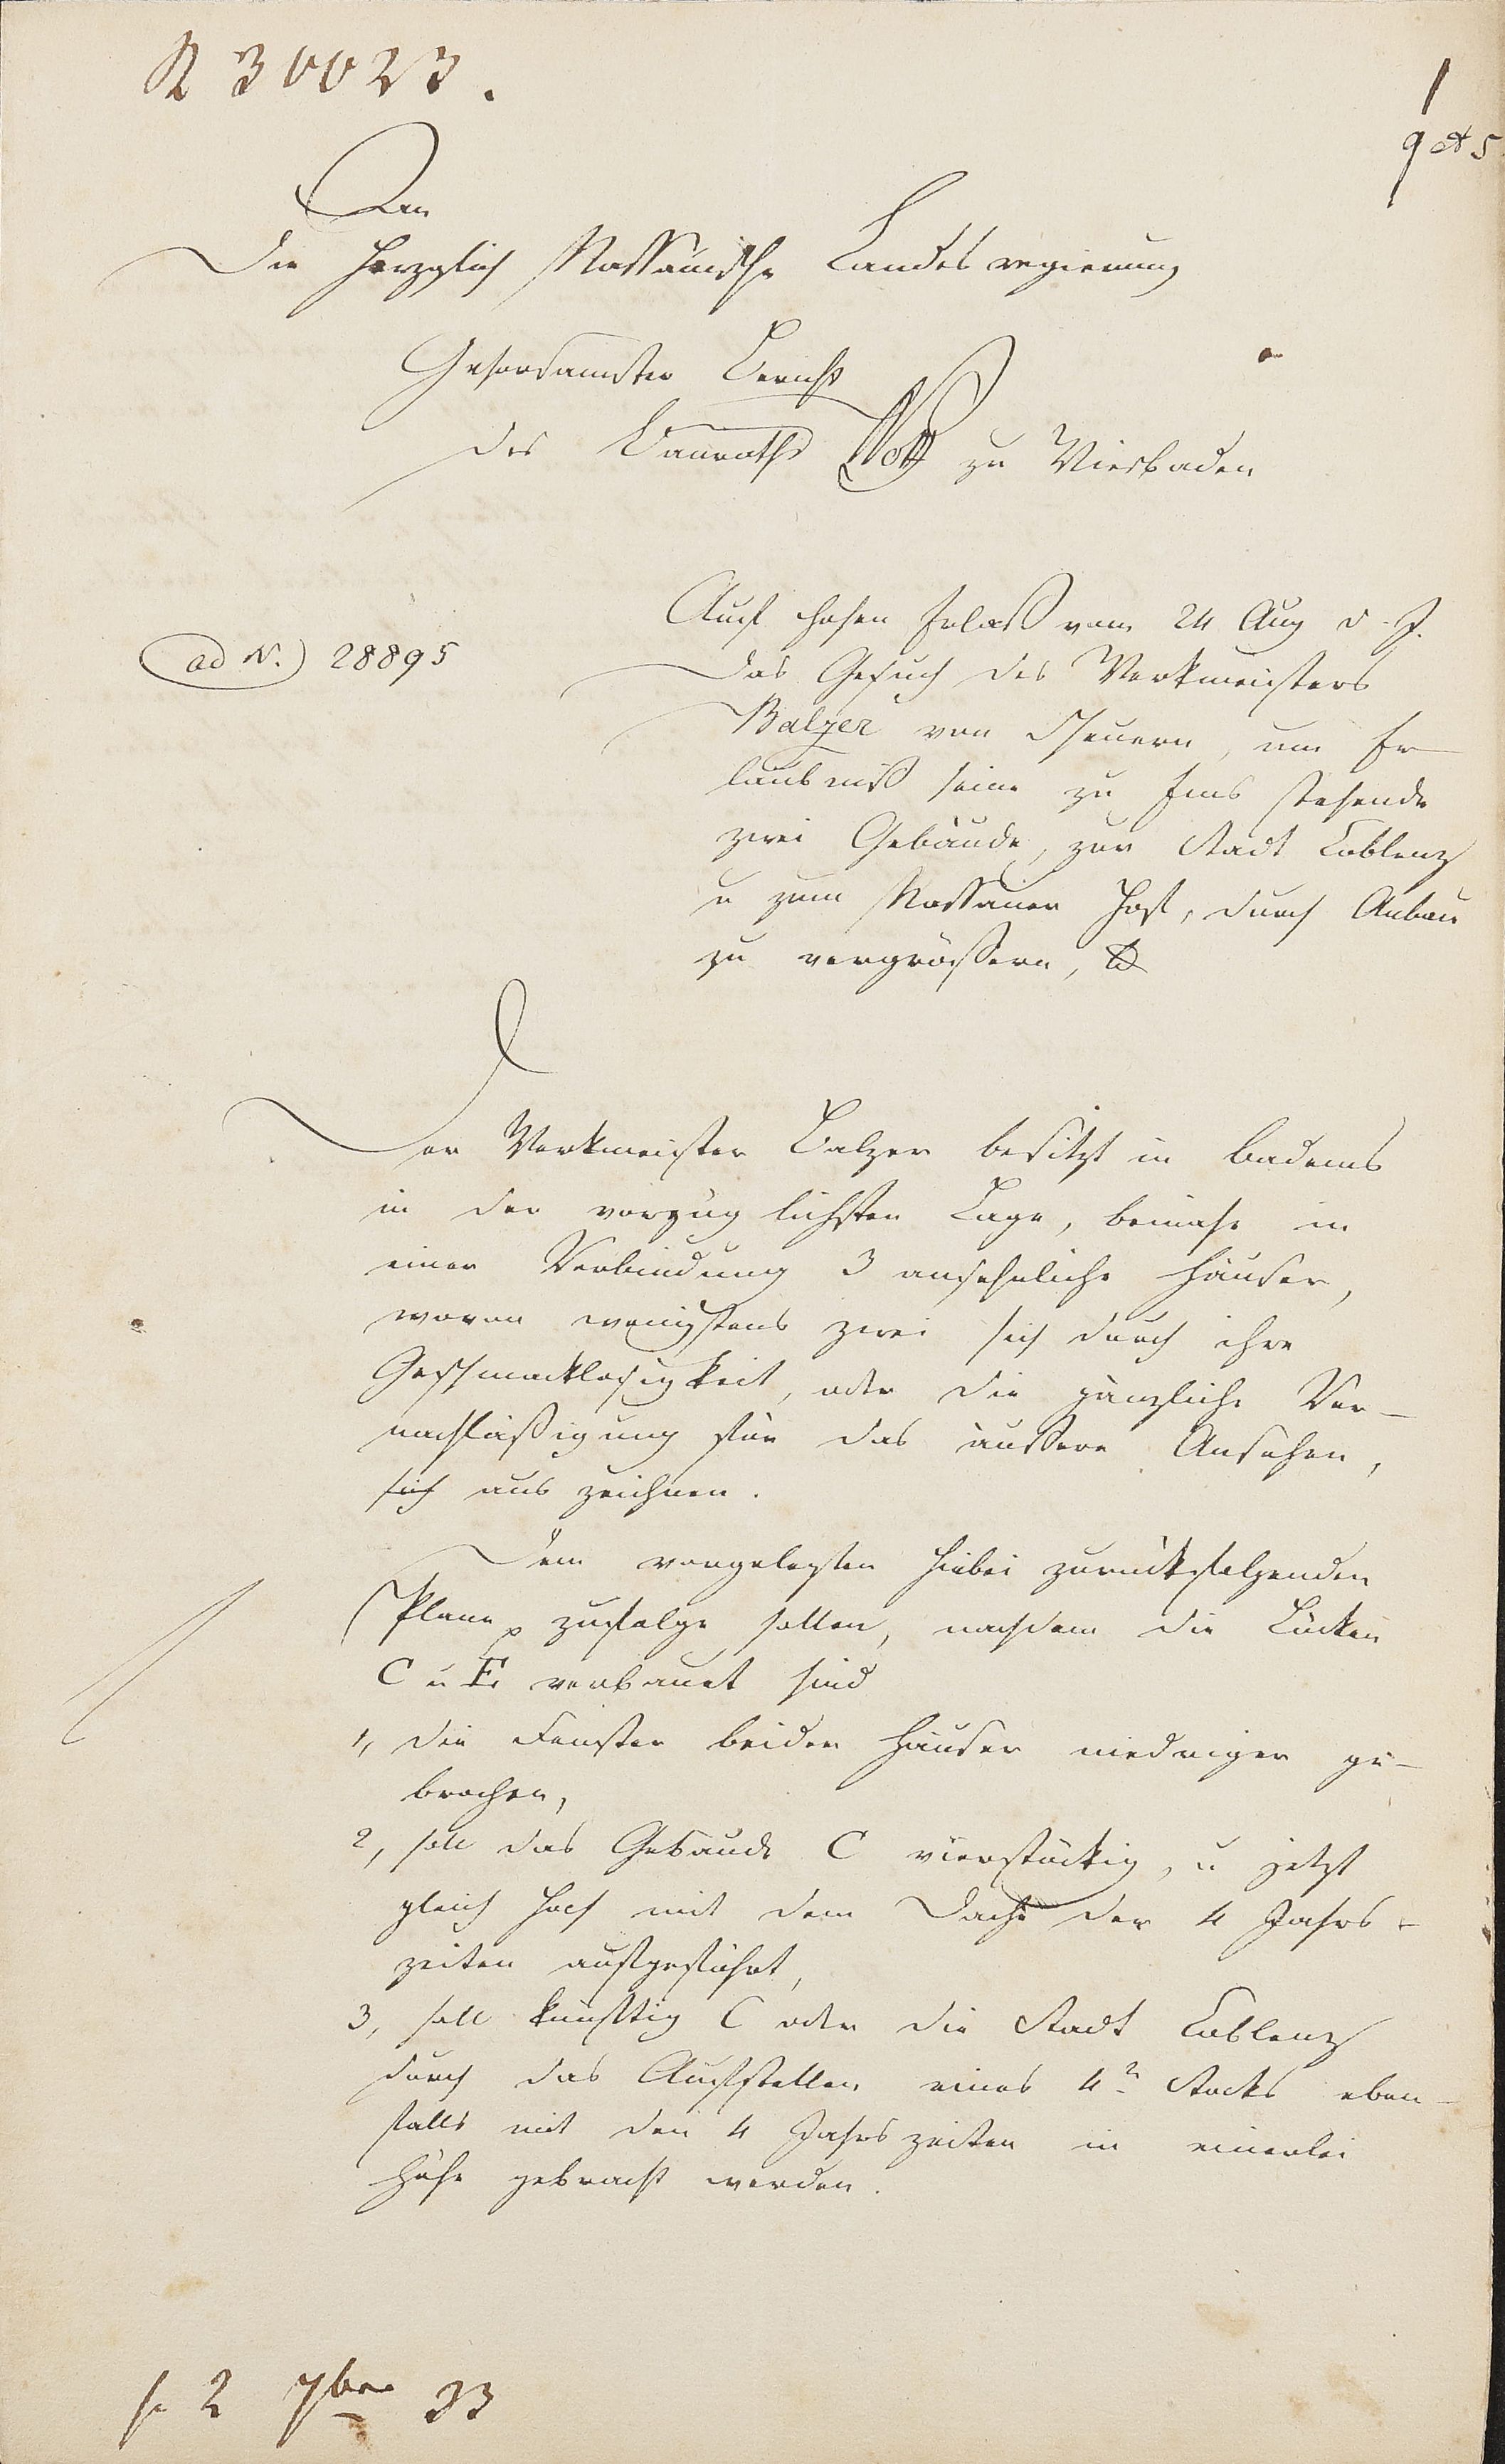 R 30023.
1
9 et 5
An
Die Herzoglich Nassauische Landesregierung
Gehorsamster Bericht
des Bauraths zu Wiesbaden
ad N. 28895
Auf hohen Erlaß vom 24 Aug d. J.
das Gesuch des Werkmeisters
Balzer von Scheuern, um Er-
laubniß seine zu Ems stehende
zwei Gebäude, zur Stadt Coblenz
u zum Nassauer Hof, durch Anbau
zu vergrößern,
Der Werkmeister Balzer besitzt in Badems
in der vorzüglichsten Lage, beinahe in
einer Verbindung 3 ansehnliche Häuser,
wovon wenigstens zwei sich durch ihre
Geschmacklosigkeit, oder die gänzliche Ver-
nachläßigung für das äußere Ansehen,
sich aus zeichnen.
Dem vorgelegten hiebei zurückfolgenden
Plane zufolge sollen, nachdem die Lücken
C u E verbauet sind
1, die Fenster beider Häuser niedriger ge-
brochen,
2, soll das Gebäude C vierstöckig, u jetzt
gleich hoch mit dem Dache der 4 Jahrs-
zeiten aufgeführt,
3, soll künftig C oder die Stadt Coblenz
durch das Aufstellen eines 4n Stocks eben-
falls mit den 4 Jahrszeiten in einerlei
Höhe gebracht werden.
2 7bre 33